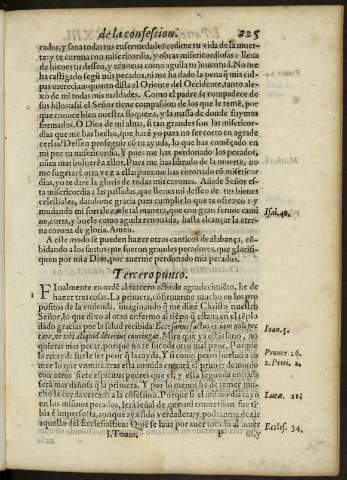 de la confession. 225
cados, y sana todas tus enfermedades: redime tu vida de la muer-
te: y te corona con misericordia, y obras misericordiosas: llena
de bienes tu desseo, y renueua como aguila tu juuentud. No me
ha castigado segũ mis pecados, ni me ha dado la pena q̃ mis cul-
pas merecian: quanto dista el Oriente del Occidente, tanto ale-
xo de mi todas mis maldades. Como el padre se compadece de
sus hijos assi el Señor tiene compassion de los que le temẽ, por
que conoce bien nuestra flaqueza, y la massa de donde fuymos
formados. O Dios de mi alma, si tan grandes son las misericor-
dias que me has hecho, que harè yo para no ser corto en agrade
cerlas? Desseo proseguir cõ tu ayuda, lo que has començado en
mi por tu misericordia. Y pues me has perdonado los pecados,
nũca mas boluerè a ellos. Pues me has librado de la muerte, no
me sugetarè otra vez a ella: pues me has coronado cõ misericor
dias, yo te dare la gloria de todas mis coronas. Añade Señor es-
ta misericordia a las passadas, que llenes mi desseo de tus bienes
celestiales, dandome gracia para cumplir lo que te ofrezco: y
mudando mi fortaleza, de tal manera, que con gran feruor cami
ne, corra, y buele como aguila renouada, hasta alcançar la eter-
na corona de gloria. Amen.
Isai. 40.
A este modo se pueden hazer otros canticos de alabança, cõ-
bidando a los santos que fueron grandes pecadores, que glorifi-
quen por mi a Dios, por auerme perdonado mis pecados.
Tercero punto.
FInalmente en ordẽ al tercero acto de agradecimiẽto, he de
hazer tres cosas. La primera, cõfirmarme mucho en los pro
positos de la emienda, imaginando q̃ me dize Christo nuestro
Señor, lo que dixo al otro enfermo al tiẽpo q̃ estaua en el tẽplo
dado gracias por la salud recibida: Ecce sanus factus es, iam noli pec
care, ne tibi aliquid deterius contingat.
Ioan. 5.
Mira que ya estàs sano, no
quieras mas pecar, porque no te suceda otro mal peor. Porque
la recayda suele ser peor q̃ la cayda.
Prouer. 26.
2. Petri. 2.
Luca. 11.
la cayda cercana a la cõfession.
en los mismos pecados, serà señal de que mi conuersion fue ti-
bia è imperfecta, aunque aya sido verdadera; y podranme dezir
aquello del Ecclesiastico: Que se laua por auer tocado al muer
Eccles. 34.
I. Tomo. P to, y